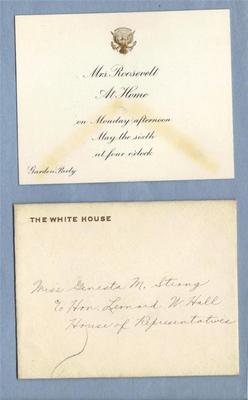 Mrs. Roosevelt
At Home
on Monday afternoon
May the sixth
at four o'clock
Garden Party
THE WHITE HOUSE
Miss Genesta M. Strong
To Hon. Leonard W. Hall
House of Representatives